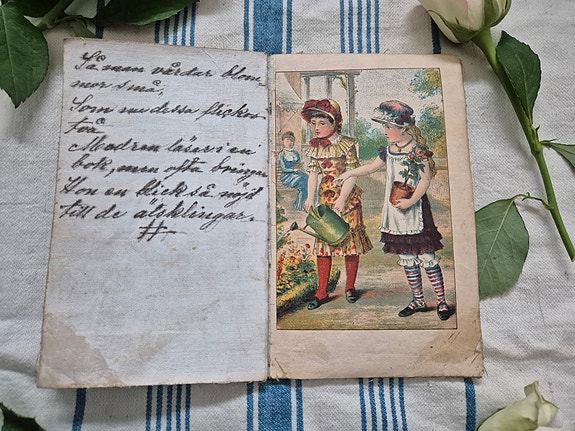 Så man vårdar blom-
mor små,
Som nu dessa flickor
två
Modren läser i en
bok, men ofta
Hon en blick så nöjd
till de älsklingar.